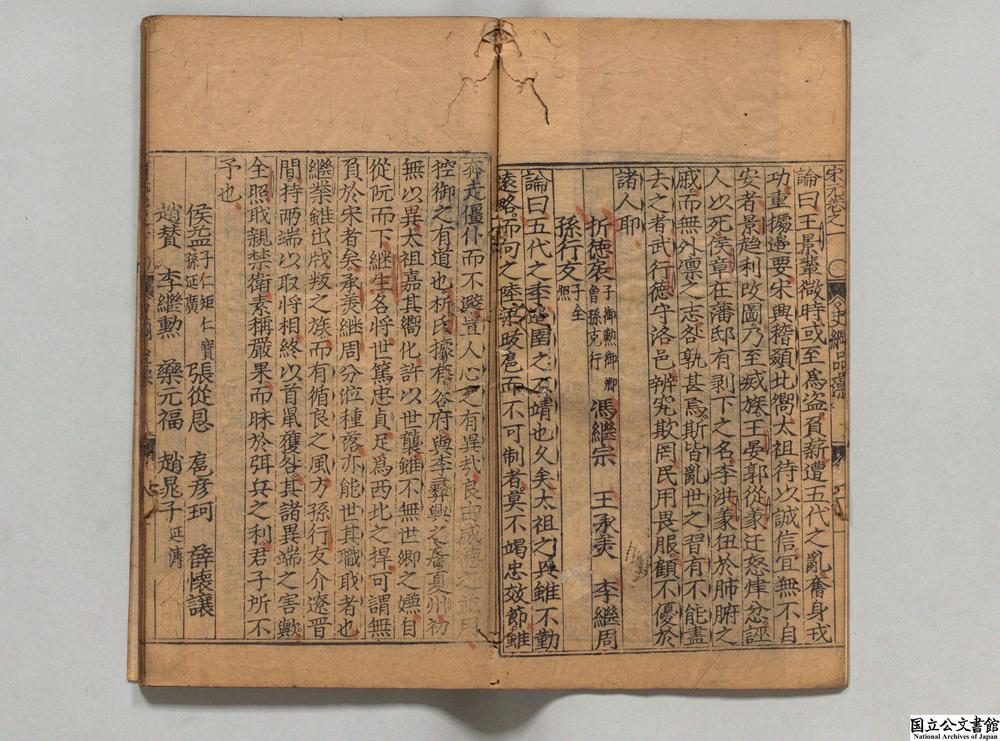 論曰王景輩微時或至爲盜負薪遭五代之亂奮身戎
功重據邊要宋興稽顙北嚮太祖待以誠信宜無不自
安者景趨利改圖乃至烕族王晏郭從義迁怒肆忿誣
人以死侯章在藩邸有剥下之名李洪義伍於肺腑之
戚而無外禀之志各孰甚焉斯皆亂世之習有不能盡
去之者武行德守洛邑辨究欺罔民用畏服顧不優於
諸人耶
折德扆 子御勲御卿 曾孫克行 馮繼宗 王承美 李繼周
孫行友 子全照
論曰五代之季邉圉之不靖也久矣太祖之兵雖不勤
遠略而向之陸梁跋扈而不可制者莫不竭忠效節雖
奔走僵仆而不避豈人心之有異哉良由威德之並用
控御之有道也折氏據有谷府與李彝興之居夏州初
無以異太祖嘉其嚮化許以世襲雖不無世卿之嫌自
從阮而下繼生名将世篤忠貞足爲西北之捍可謂無
負於宋者矣承美繼周分位種落亦能世其職戢者也
繼業雖出戕叛之族而有循良之風方孫行友介遼晋
間持两端以取将相終以首鼠獲咎其諸異端之害歟
全照戢親禁衛素稱嚴果而昧於弭兵之利君子所不
予也
侯益 子仁矩 仁寶 孫延廣 張從恩 扈彦珂 薛懷讓
趙賛 李繼勲 藥元福 趙晁 子延溥
国立公文書館
National Archives of Japan